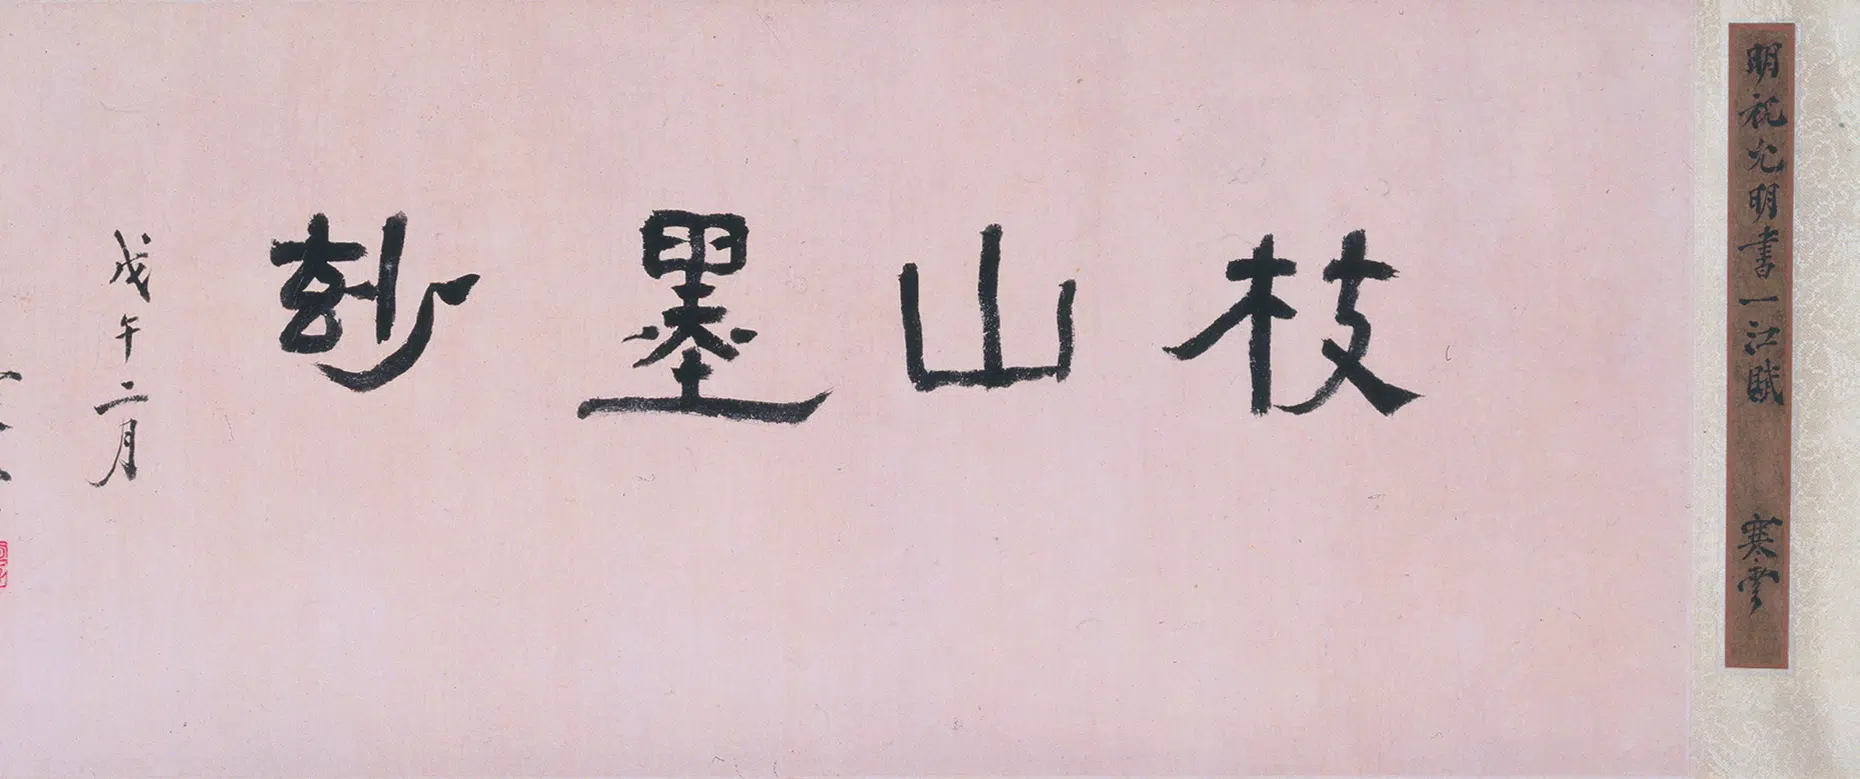 明祝允明書一江賦
寒雲
枝山墨玅
戊午二月